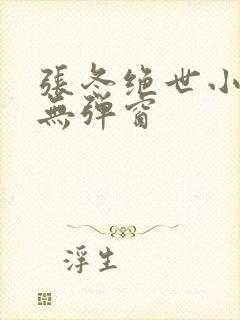 張冬绝世小
無彈窗
浮生